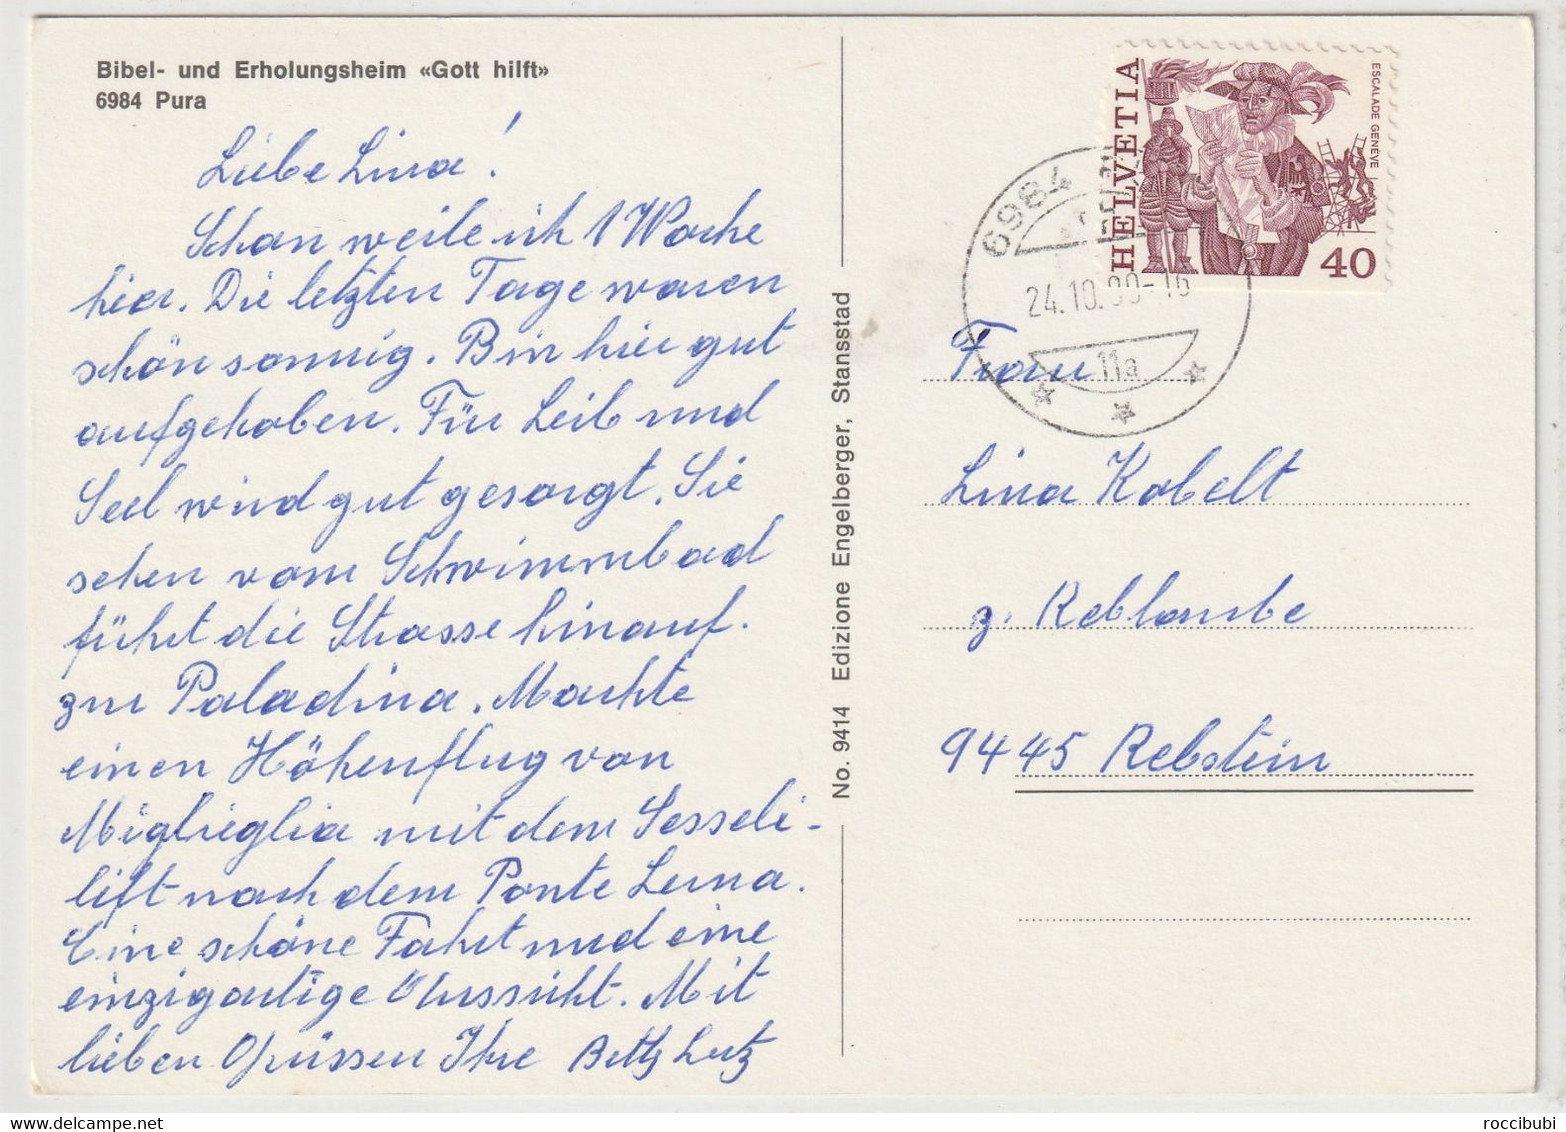 Bibel- und Erholungsheim «Gott hilft»
6984 Pura
Liebe Lina!
Schon weile ich 1 Woche
hier. Die letzten Tage waren
schön sonnig. Bin hier gut
aufgehoben. Für Leib und
Seel wird gut gesorgt. Sie
sehen vom Schwimmbad
führt die Strasse hinauf.
zur Paladina. Machte
einen Höhenflug von
Miglieglia mit dem Sesseli-
lift nach dem Ponte Lema.
Eine schöne Fahrt und eine
einzigartige Aussicht. Mit
lieben Grüssen Ihre Betty Lutz
No. 9414 Edizione Engelberger, Stansstad
HELVETIA
ESCALADE GENÈVE
40
6984
24.10.
11a
Frau
Lina Kobelt
z. Reblaube
9445 Rebstein
roccibubi